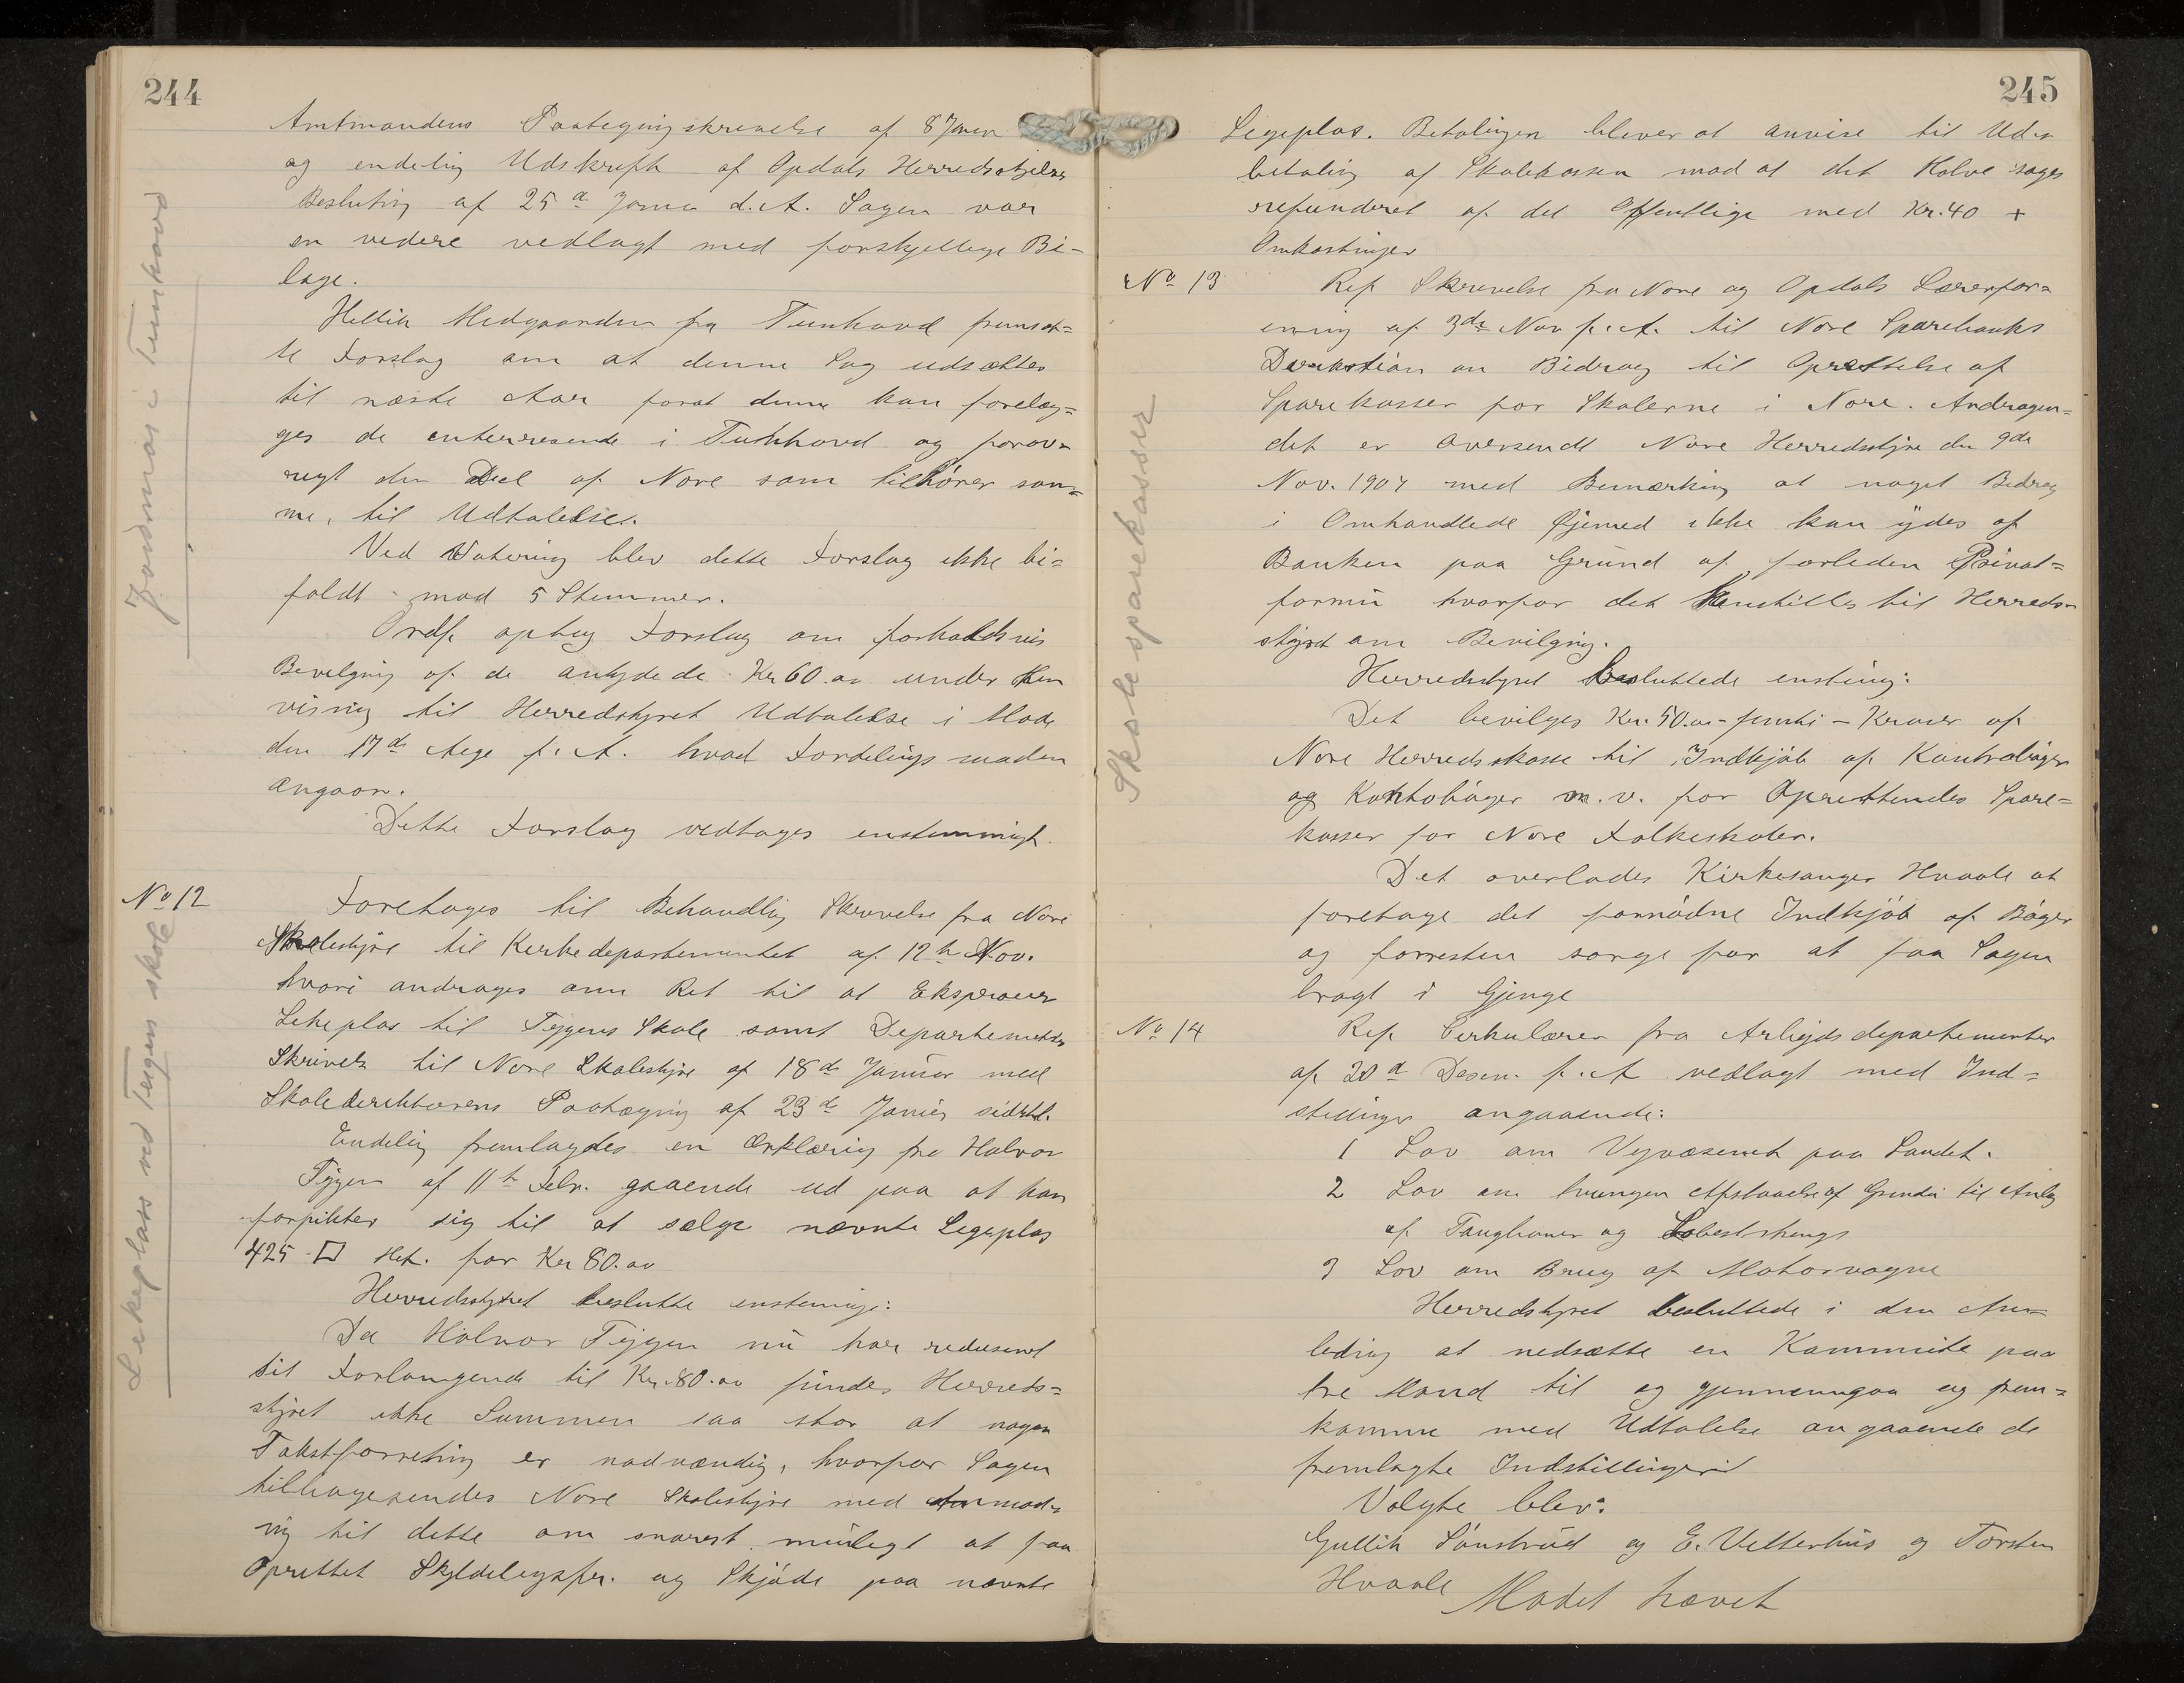 244
Amtmandens Paategningskrivelse af 8 Janu
og endelig Udskrift af Opdals Herredsstyrelses
Beslutning af 25de Janua d.A. Sagen var
en videre vedlagt med forskjellige Bi-
lage.
Hellik Midgaarden fra Tunhovd fremsat=
te Forslag om at denne Sag udsættes
til næste Aar forat denne kan forelæg=
ges de enterresende i Tunhovd og forøv=
rigt den Deel af Nore som tilhører sam=
me, til Udtalelse.
Ved Votering blev dette Forslag ikke bi=
faldt mod 5 Stemmer.
Ordf. optog Forslag om forholdsvis
Bevilgning af de antydede Kr 60.oo under Hen
visning til Herredstyret Udtalelse i Møde
den 17de Aug f.A. hvad Fordelingsmaaden
angaar.
Dette Forslag vedtages enstemmigt.
No 12
Foretages til Behandling Skrivelse fra Nore
Skolestyre til Kirkedepartementet af 12te Nov.
hvori andrages om Ret til at Ekspropr
Lekeplas til Tejgens Skole samt Departemets
Skrivels til Nore Skolestyre af 18de Januar med
Skoledirektørens Paategning af 23de Januar sidstl.
Endelig fremlagdes en Erklæring fra Halvor
Tejgen af 11te Febr. gaaende ud paa at han
forpikter sig til at sælge nævnte Legeplas
425 □ Met. for Kr 80.oo
Herredsstyret beslutte enstemmig:
Da Halvor Tejgen nu har reduseret
sit Forlangende til Kr. 80.oo findes Herreds=
styret ikke Summen saa stor at nogen
Takstforretning er nødvændig, hvorfor Sagen
tilbagesendes Nore Skolestyre med Anmod=
ning til dette om snarest muligt at faa
Oprettet Skyldelingsfor. og Skjøde paa nævnte
Jordmor i Tunhovd
Lekeplass ved Teigen skole
245
Legeplas. Betalingen bliver at anvise til Ud=
betaling af Skolekassen mod at det Halve søges
refunderet af det Offentlige med Kr. 40 +
Omkostninger
No 13
Ref Skrivelse fra Nore og Opdals Lærerfor=
ening af 3de Nov f.A. til Nore Sparebanks
Direktion om Bidrag til Oprettelse af
Sparekasser for Skolerne i Nore. Andragen=
det er oversendt Nore Herredsstyre den 9de
Nov. 1907 med Bemærkning at noget Bidrag
i Omhandlede Øjemed ikke kan ydes af
Banken paa Grund af forleden
hvorfor det Henstilles til Herreds=
styret om Bevilgning.
Herredstyret besluttede enstemig:
Det bevilges Kr. 50.oo - femti - Kroner af
Nore Herredskasse til Indkjøb af Kontrolbøger
og Kontobøger m.v. for Oprettendes Spare=
kasser for Nore Folkeskoler.
Det overlades Kirkesanger Hvaale at
foretage det fornødne Indkjøb af Bøger
og forresten sørge for at faa Sagen
bragt i Gjenge
No 14
Ref Cirkulærer fra Arbejdsdepartementer
af 20de Desem. f.A. vedlagt med Ind=
stillinger angaaende:
1 Lov om Vejvæsenet paa Landet.
2 Lov om tvungen Afstaaelse af Grunde til Anlæg
af Taugbaner og Løbestrenge
3 Lov om Brug af Motorvogne
Herredstyret besluttede i den An=
ledning at nedsætte en Kommite paa
tre Mand til og gjennemgaa og frem=
komme med Udtalelse angaaende de
fremlagte Indstillinger
Valgte blev:
Gullik Sønstrød og E. Vetterhus og Torsten
Hvaale Mødet hævet
Skolesparekasser